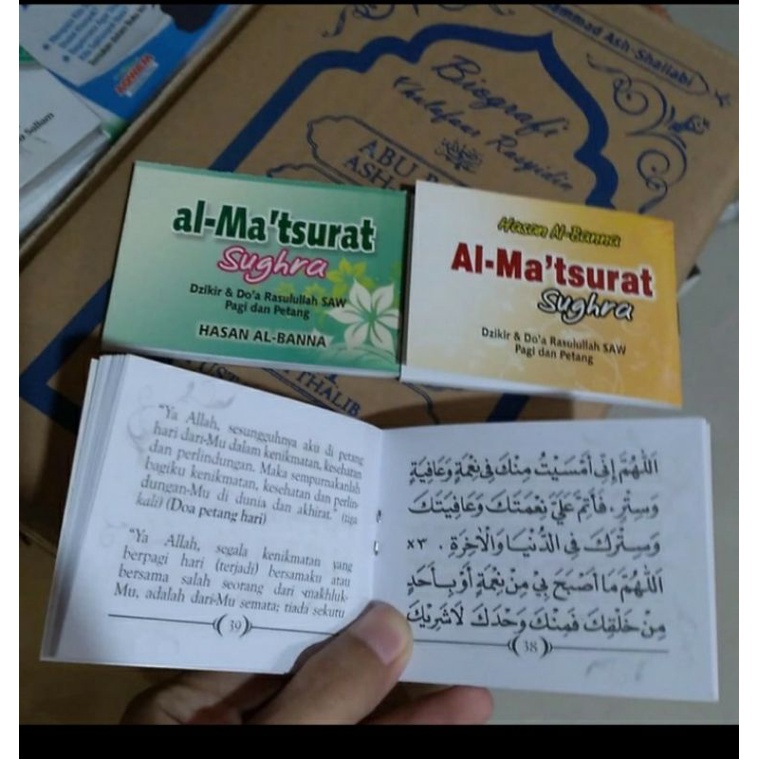 Biografi
Khulafaur Rasyidin
al-Ma'tsurat
Sughra
Dzikir & Do'a Rasulullah SAW
Pagi dan Petang
HASAN AL-BANNA
Hasan Al-Banna
Al-Ma'tsurat
Sughra
Dzikir & Do'a Rasulullah SAW
Pagi dan Petang
THALIB
"Ya Allah, sesungguhnya aku di petang
hari dari-Mu dalam kenikmatan, kesehatan
dan perlindungan. Maka sempurnakanlah
bagiku kenikmatan, kesehatan dan perlin-
dungan-Mu di dunia dan akhirat." (tiga
kali) (Doa petang hari)
"Ya Allah, segala kenikmatan yang
berpagi hari (terjadi) bersamaku atau
bersama salah seorang dari makhluk-
Mu, adalah dari-Mu semata; tiada sekutu
39
اَللّٰهُمَّ إِنِّى أَمْسَيْتُ مِنْكَ فِى نِعْمَةٍ وَعَافِيَةٍ
وَسِتْرٍ. فَأَتِمَّ عَلَيَّ نِعْمَتَكَ وَعَافِيَتَكَ
وَسِتْرَكَ فِى الدُّنْيَا وَالْاٰخِرَةِ . ×٣
اَللّٰهُمَّ مَا أَصْبَحَ بِيْ مِنْ نِعْمَةٍ أَوْ بِأَحَدٍ
مِنْ خَلْقِكَ فَمِنْكَ وَحْدَكَ لَا شَرِيْكَ
38